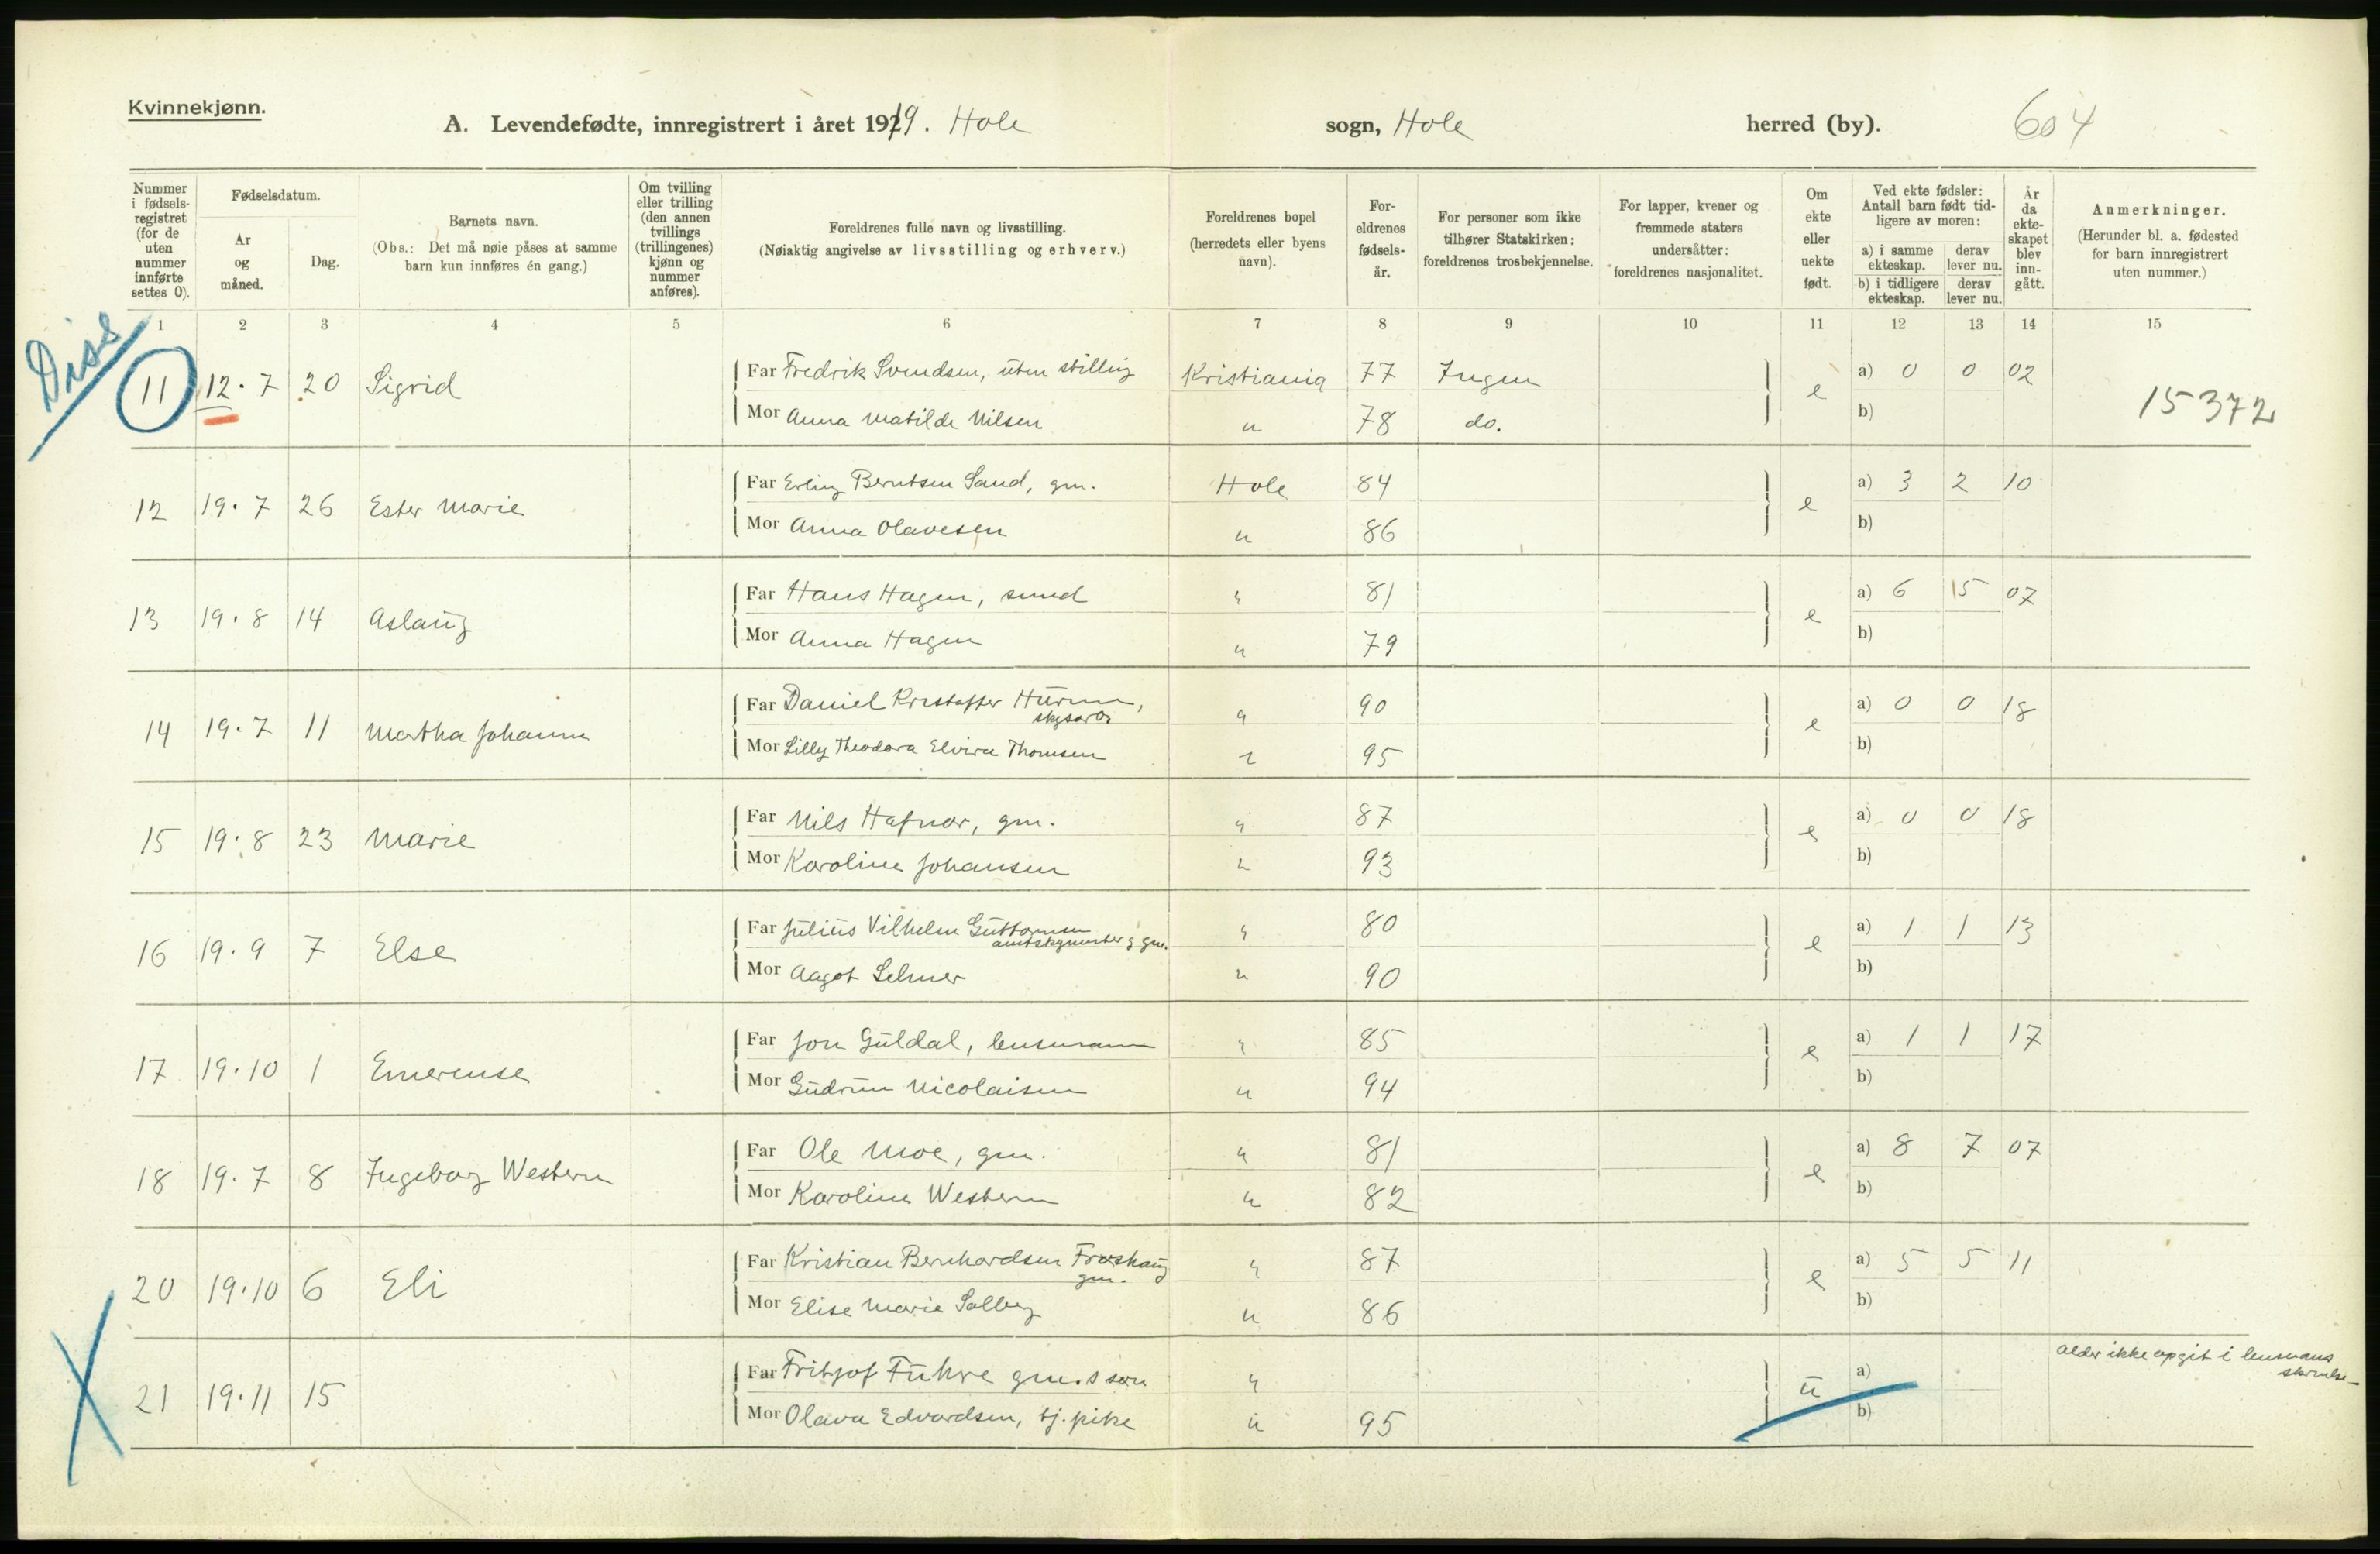 Kvinnekjønn.
A. Levendefødte, innregistrert i året 1919. Hole sogn, Hole herred (by). 604
Nummer i fødselsregistret (for de uten nummer innførte settes 0).
Fødselsdatum.
År og måned.
Dag.
Barnets navn.
(Obs.: Det må nøie påses at samme barn kun innføres én gang.)
Om tvilling eller trilling (den annen tvillings (trillingenes) kjønn og nummer anføres).
Foreldrenes fulle navn og livsstilling.
(Nøiaktig angivelse av livsstilling og erhverv.)
Foreldrenes bopel (herredets eller byens navn).
Foreldrenes fødselsår.
For personer som ikke tilhører Statskirken: foreldrenes trosbekjennelse.
For lapper, kvener og fremmede staters undersåtter: foreldrenes nasjonalitet.
Om ekte eller uekte født.
Ved ekte fødsler: Antall barn født tidligere av moren:
a) i samme ekteskap. derav lever nu.
b) i tidligere ekteskap. derav lever nu.
År da ekteskapet blev inngått.
Anmerkninger.
(Herunder bl. a. fødested for barn innregistrert uten nummer.)
1 2 3 4 5 6 7 8 9 10 11 12 13 14 15
Diss
11 12.7 20 Sigrid Far Fredrik Svendsen, uten stilling Kristiania 77 Ingen e a) 0 0 02 15372
Mor Anna Matilde Nilsen " 78 do. b)
12 19.7 26 Ester Marie Far Erling Berntsen Sand, gm. Hole 84 e a) 3 2 10
Mor Anna Olavesen " 86 b)
13 19.8 14 Aslaug Far Hans Hagen, smed " 81 e a) 6 5 07
Mor Anna Hagen " 79 b)
14 19.7 11 Martha Johanne Far Daniel Kristoffer Hurum, " 90 e a) 0 0 18
Mor Lilly Theodora Elvira Thomsen " 95 b)
15 19.8 23 Marie Far Nils Hafnor, gm. " 87 e a) 0 0 18
Mor Karoline Johansen " 93 b)
16 19.9 7 Else Far Julius Vilhelm Guttormsen gm. " 80 e a) 1 1 13
Mor Aagot Selmer " 90 b)
17 19.10 1 Emerense Far Jon Guldal, lensmann " 85 e a) 1 1 17
Mor Gudrun Nicolaisen " 94 b)
18 19.7 8 Ingeborg Western Far Ole Moe, gm. " 81 e a) 8 7 07
Mor Karoline Western " 82 b)
20 19.10 6 Eli Far Kristian Bernhardsen Frøshaug gm. " 87 e a) 5 5 11
Mor Elise Marie Solberg " 86 b)
21 19.11 15 Far Fritjof Fuhre gm.s søn " u a) alder ikke opgit i lensmans skrivelse
Mor Olava Edvardsen, tj.pike " 95 b)